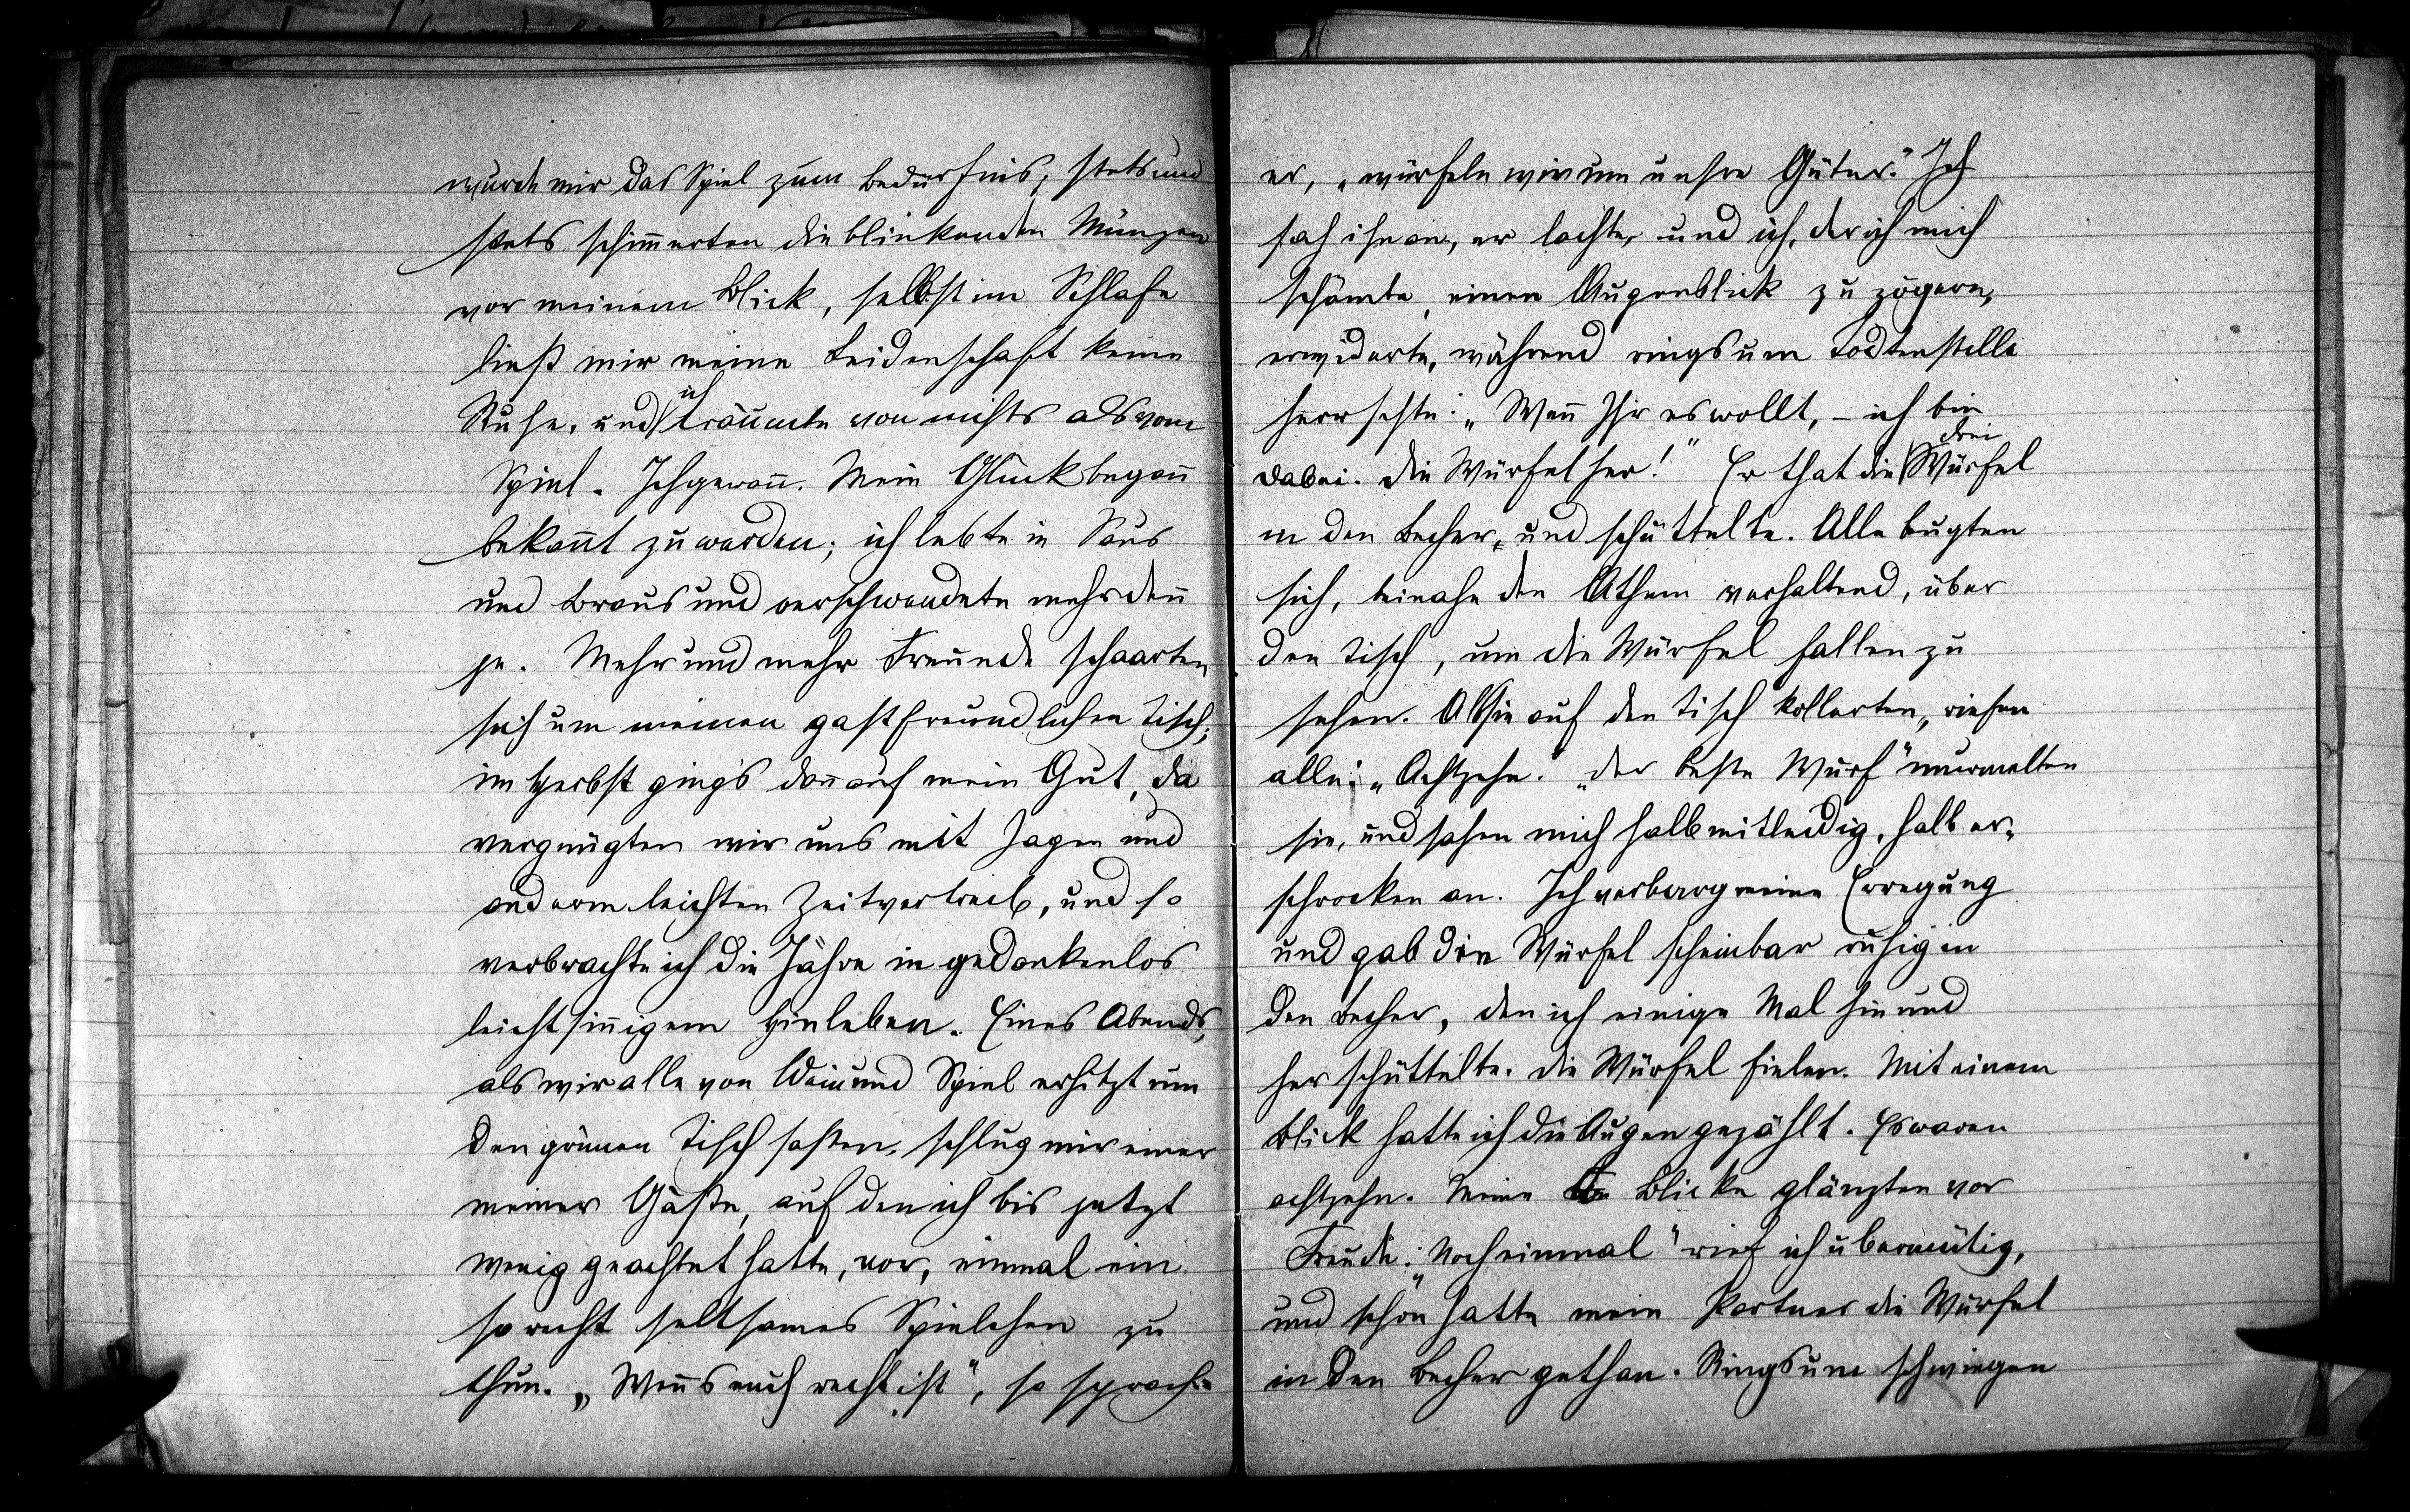 wurde mir das Spiel zum Bedürfnis; stets und
stets schim̄erten die blinkenden Münzen
vor meinem Blick, selbst im Schlafe
ließ mir meine Leidenschaft keine
Ruhe, und ich träumte von nichts als vom
Spiel. Ich gewan̄. Mein Glück began̄
bekan̄t zu werden; ich lebte in Saus
und Braus und verschwendete mehr den̄
je. Mehr und mehr Freunde schaarten
sich um meinen gastfreundlichen Tisch;
im Herbst ging's dan̄ auf mein Gut, da
vergnügten wir uns mit Jagen und
anderm leichten Zeitvertreib, und so
verbrachte ich die Jahre in gedankenlos
leichtsin̄igem Hinleben. Eines Abends,
als wir alle von Wein und Spiel erhitzt um
den grünen Tisch saßen, schlug mir einer
meiner Gäste, auf den ich bis jetzt
wenig geachtet hatte, vor, einmal ein
so recht seltsames Spielchen zu
thun. „Wen̄s euch recht ist", so sprach
er, „würfeln wir um unsre Güter." Ich
sah ihn an, er lachte, und ich, der ich mich
schämte, einen Augenblick zu zögern,
erwiderte, während ringsum Todtenstille
herrschte: „Wen̄ Ihr es wollt, – ich bin
dabei. Die Würfel her!" Er that die drei Würfel
in den Becher, und schüttelte. Alle bugten
sich, beinahe den Athem verhaltend, über
den Tisch, um die Würfel fallen zu
sehen. Als sie auf den Tisch kollerten, riefen
alle: „Achtzehn." „Der beste Wurf" murmelten
sie, und sahen mich halb mitleidig, halb er-
schrocken an. Ich verbarg meine Erregung
und gab die Würfel scheinbar ruhig in
den Becher, den ich einige Mal hin und
her schüttelte. Die Würfel fielen. Mit einem
Blick hatte ich die Augen gezählt. Es waren
achtzehn. Meine Blicke glänzten vor
Freude. „Noch einmal" rief ich übermütig,
und schon hatte mein Partner die Würfel
in den Becher gethan. Ringsum schwiegen